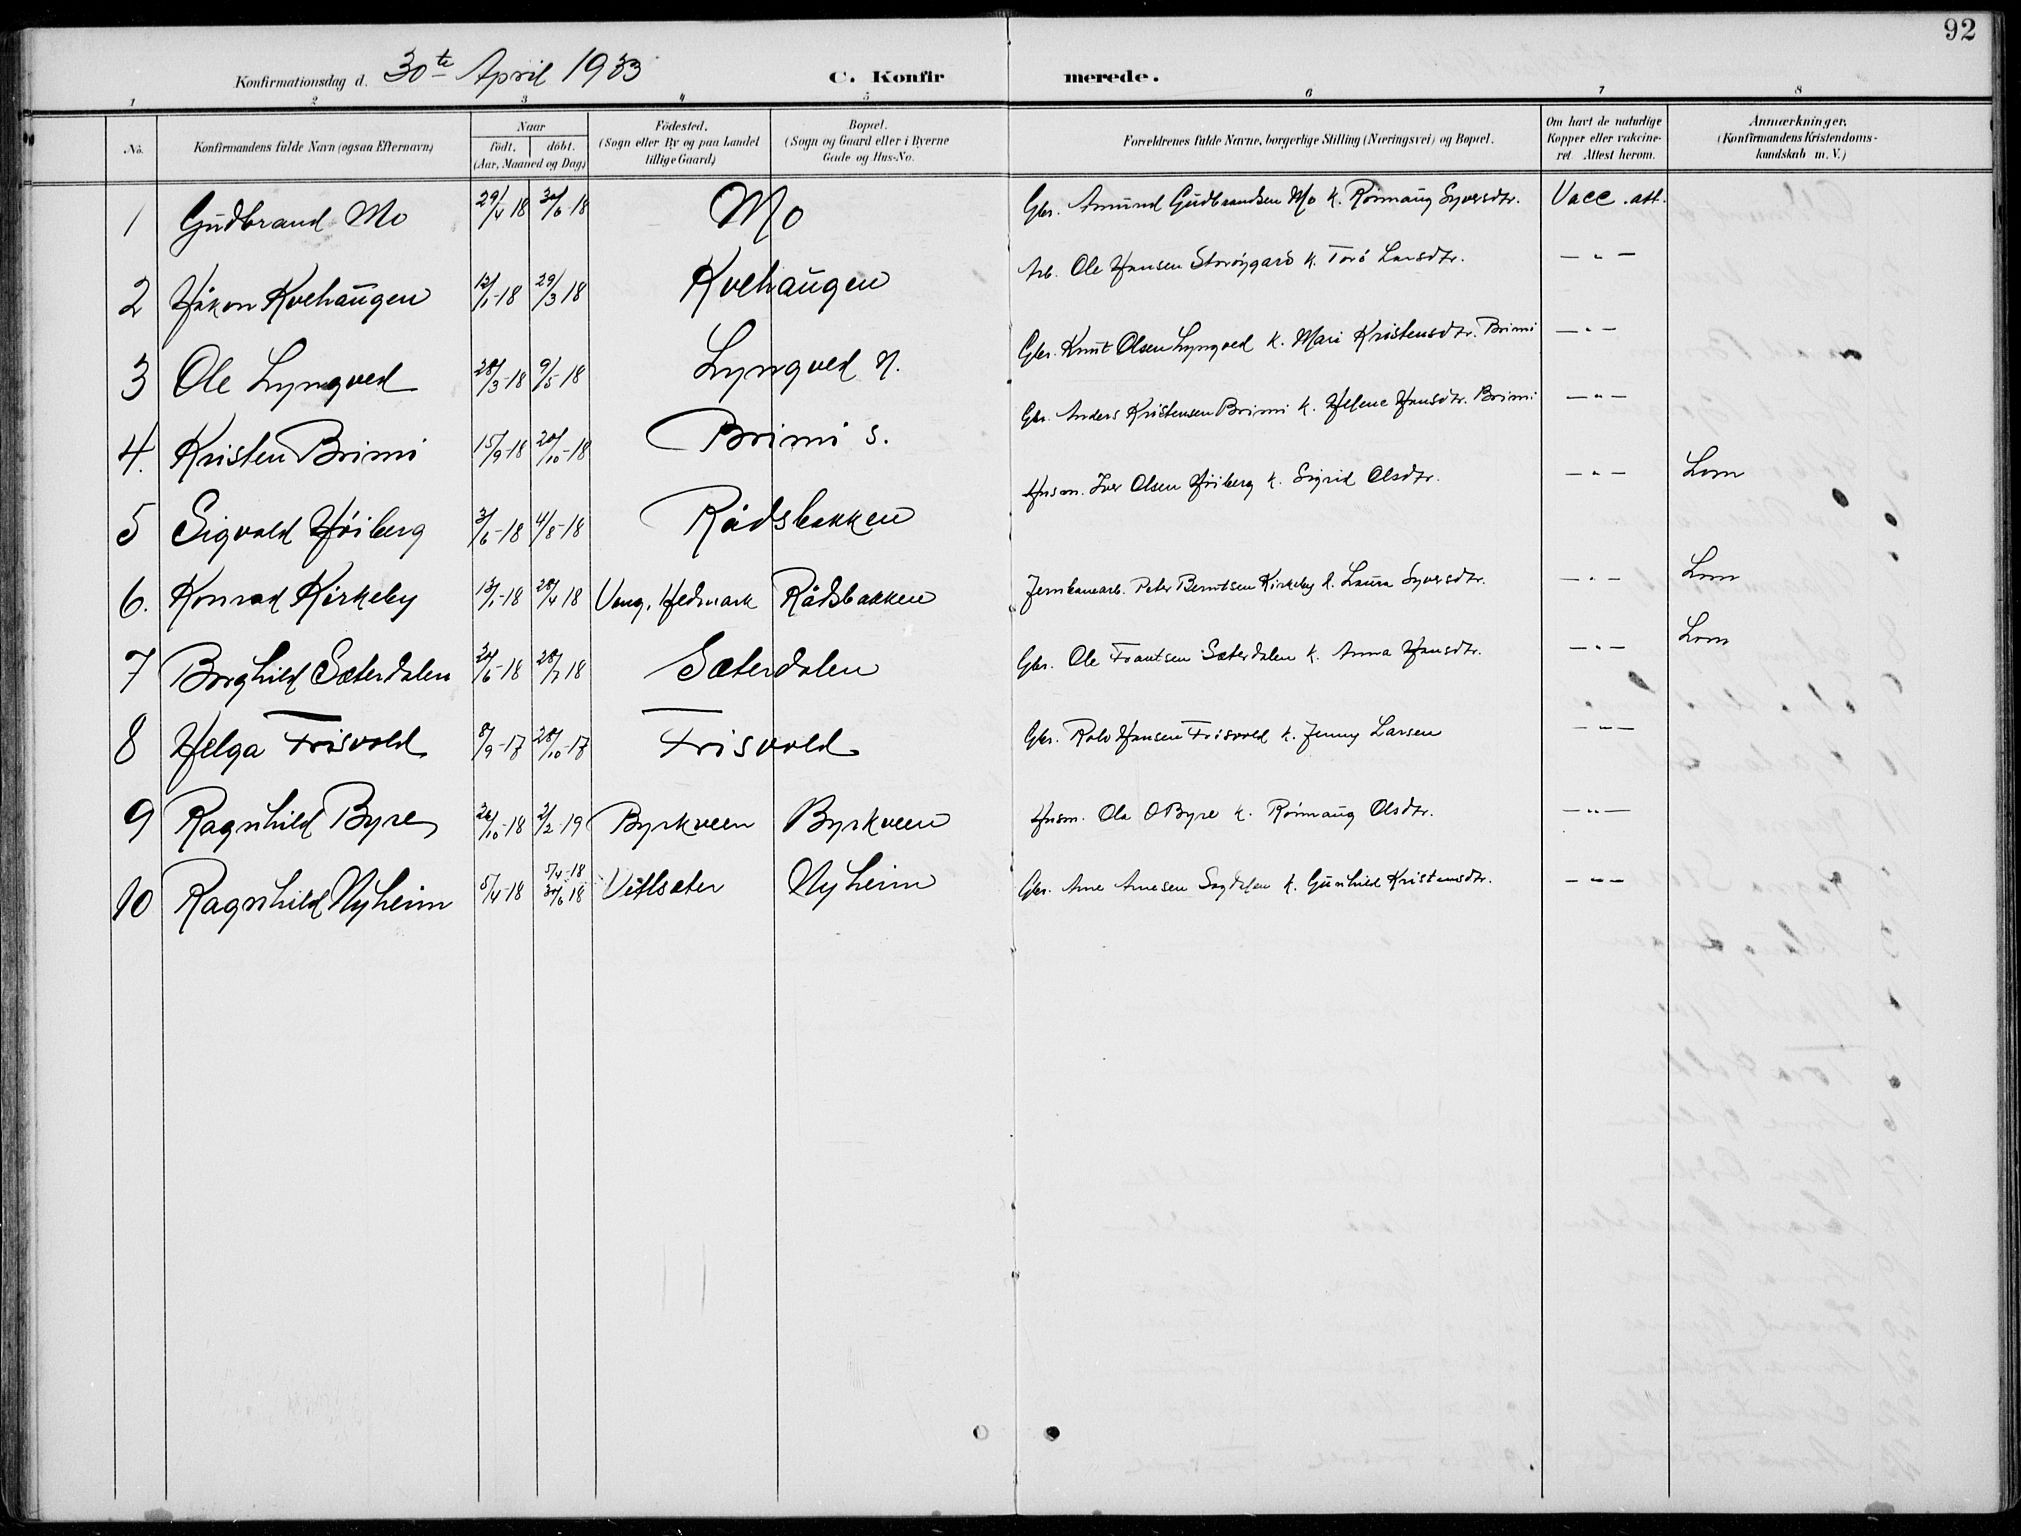 92
Konfirmationsdag d. 30te April 1933 C. Konfirmerede.
1 2 3 4 5 6 7 8
No. Konfirmandens fulde Navn (ogsaa Efternavn) Naar født, døbt. (Aar, Maaned og Dag) Fødested. (Sogn eller By og paa Landet tillige Gaard) Bopæl. (Sogn og Gaard eller i Byerne Gade og Hus-No. Forældrenes fulde Navne, borgerlige Stilling (Næringsvei) og Bopæl. Om havt de naturlige Kopper eller vakcineret. Attest herom. Anmærkninger, (Konfirmandens Kristendomskundskab m. V.)
1 Gudbrand Mo 29/4-18 30/6-18 Mo Gbr. Amund Gudbrandsen Mo k. Rønnaug Syversdtr. Vacc. att.
2 Håkon Kvehaugen 12/1-18 29/3 18 Kvehaugen Arb. Ole Hansen Storøygard k. Torø Larsdtr. — " —
3 Ole Lyngved 28/3-18 9/5-18 Lyngved n. Gbr. Knut Olsen Lyngved k. Mari Kristensdtr. Brimi — " —
4. Kristen Brimi 15/9-18 20/10-18 Brimi s. Gbr. Anders Kristensen Brimi k. Helene Hansdtr. Brimi — " —
5 Sigvald Høiberg 3/6-18 4/8-18 Rådsbakken Husm. Iver Olsen Høiberg k. Sigrid Olsdtr. — " — Lom
6. Konrad Kirkeby 13/1-18 28/4 18 Vang, Hedmark Rådsbakken Jernbanearb. Peter Berntsen Kirkeby k. Laura Syversdtr. — " — Lom
7 Borghild Sæterdalen 24/6-18 28/7 18 Sæterdalen Gbr. Ole Frantsen Sæterdalen k. Anna Hansdtr. — " — Lom
8 Helga Frisvold 8/9-17 28/10-17 Frisvold Gbr. Rolv Hansen Frisvold k. Jenny Larsen — " —
9 Ragnhild Byre 26/10-18 2/2-19 Byrkveen Byrkveen Husm. Ola O Byre k. Rønnaug Olsdtr. — " —
10 Ragnhild Nyheim 5/4-18 5/4-18 30/6 18 Vetlsæter Nyheim Gbr. Arne Arnesen k. Gunhild Kristensdtr. — " —